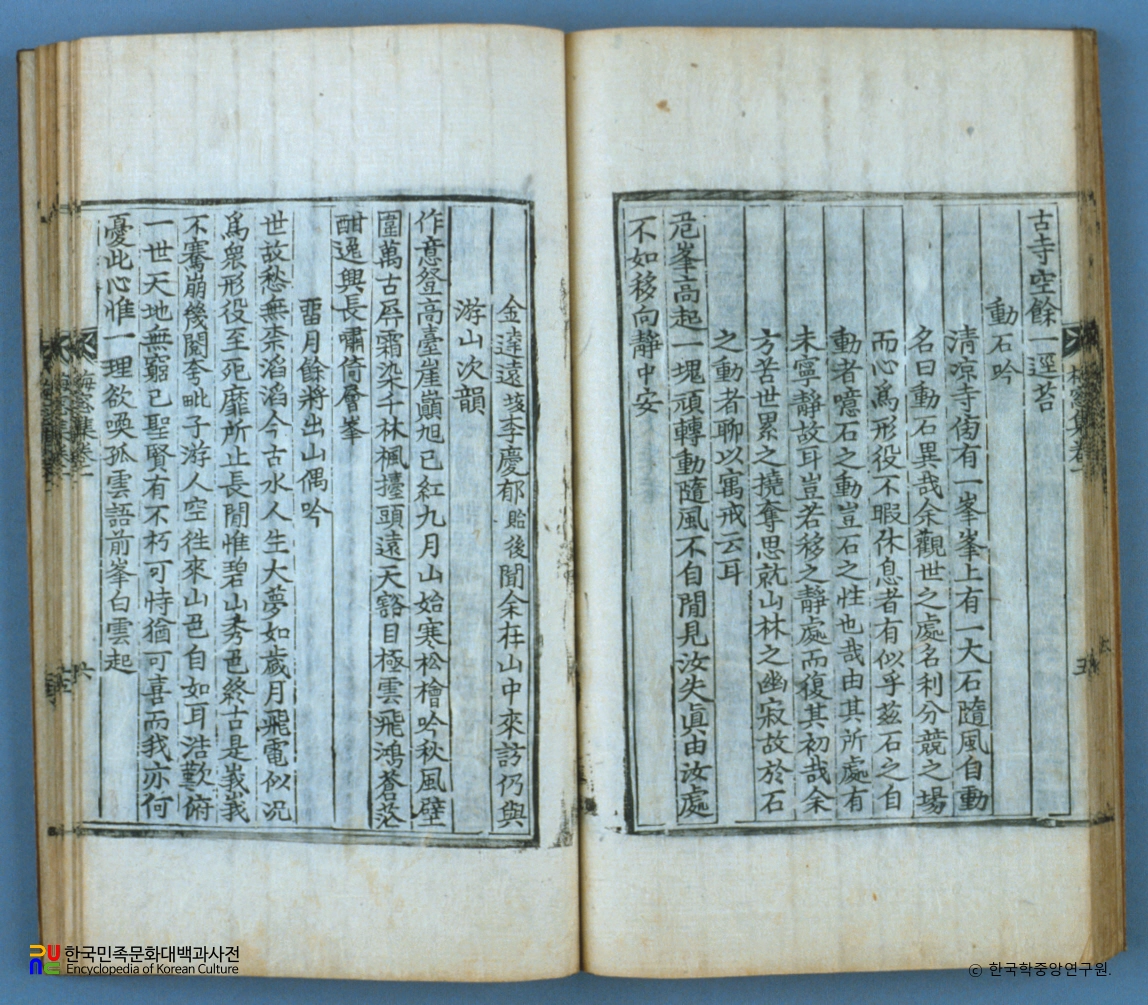 古寺空餘一逕苔
動石吟
清凉寺傍有一峯峯上有一大石隨風自動
名曰動石異哉余觀世之處名利分競之場
而心爲形役不暇休息者有似乎玆石之自
動者噫石之動豈石之性也哉由其所處有
未寧靜故耳豈若移之靜處而復其初哉余
方苦世累之撓奪思就山林之幽寂故於石
之動者聊以寓戒云耳
危峯高起一塊頑轉動隨風不自閒見汝失眞由汝處
不如移向靜中安
五
金達遠垓李慶郁貽後聞余在山中來訪仍與
游山次韻
作意登高臺崖巓旭已紅九月山始寒松檜吟秋風壁
圍萬古屛霜染千林楓擡頭遠天豁目極雲飛鴻蒼茫
酣逸興長嘯倚層峯
留月餘將出山偶吟
世故愁無柰滔滔今古水人生大夢如歲月飛電似况
爲衆形役至死靡所止長閒惟碧山秀色終古是峩峩
不騫崩幾閱夸毗子游人空徃來山色自如耳浩歎俯
一世天地無窮已聖賢有不朽可恃猶可喜而我亦何
憂此心惟一理欲喚孤雲語前峯白雲起
梅窓集卷一
六
한국민족문화대백과사전
Encyclopedia of Korean Culture
© 한국학중앙연구원.